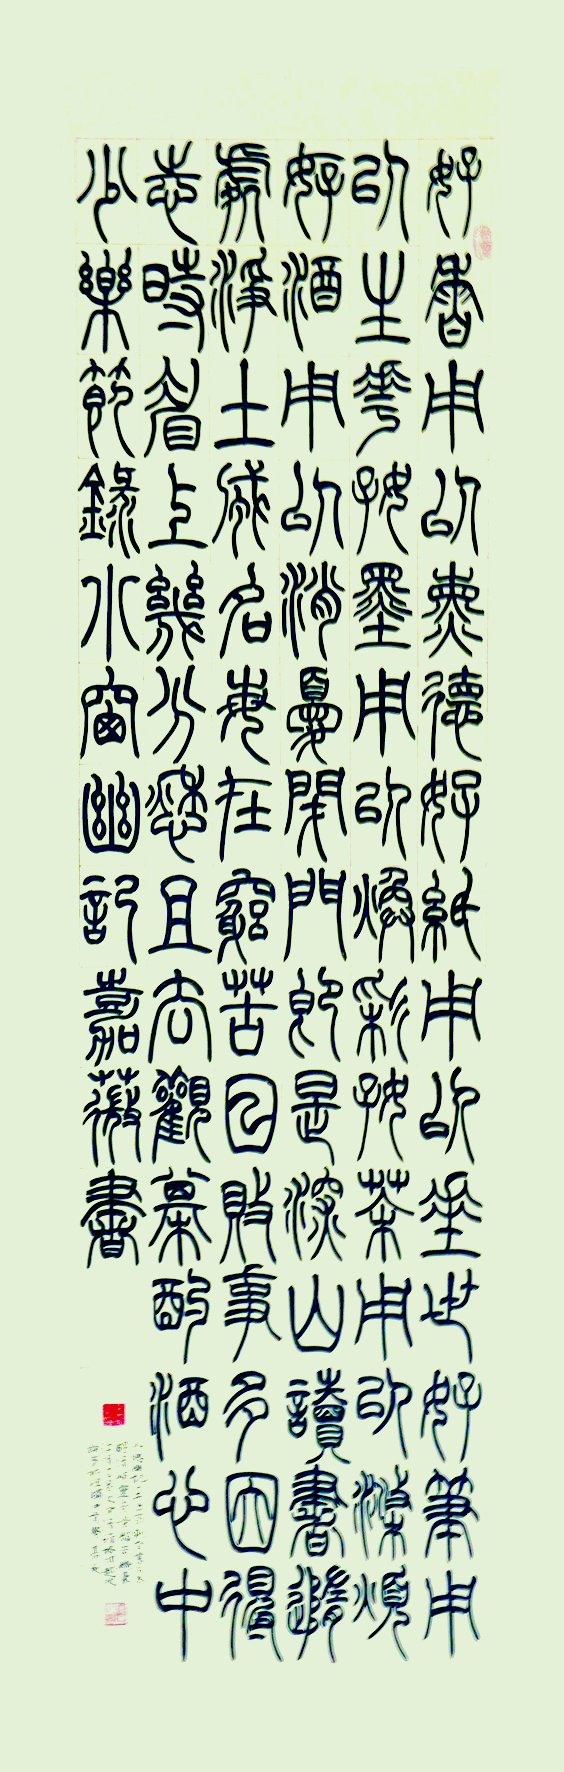 好香用以熏德好紙用以垂世好筆用
以生花好墨用以煥彩好茶用以滌煩
好酒用以消憂閉門即是深山讀書隨
處淨土成名每在窮苦日敗事多因得
志時眉上幾分愁且去觀棋酌酒心中
少樂節錄小窗幽記嘉薇書